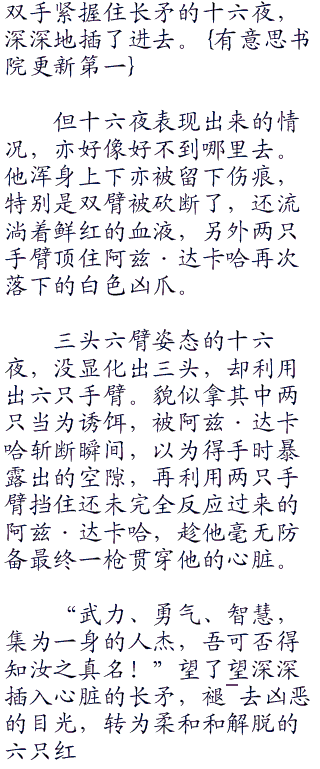 双手紧握住长矛的十六夜，
深深地插了进去。{有意思书
院更新第一}
但十六夜表现出来的情
况，亦好像好不到哪里去。
他浑身上下亦被留下伤痕，
特别是双臂被砍断了，还流
淌着鲜红的血液，另外两只
手臂顶住阿兹·达卡哈再次
落下的白色凶爪。
三头六臂姿态的十六
夜，没显化出三头，却利用
出六只手臂。貌似拿其中两
只当为诱饵，被阿兹·达卡
哈斩断瞬间，以为得手时暴
露出的空隙，再利用两只手
臂挡住还未完全反应过来的
阿兹·达卡哈，趁他毫无防
备最终一枪贯穿他的心脏。
“武力、勇气、智慧，
集为一身的人杰，吾可否得
知汝之真名！”望了望深深
插入心脏的长矛，褪¯去凶恶
的目光，转为柔和和解脱的
六只红